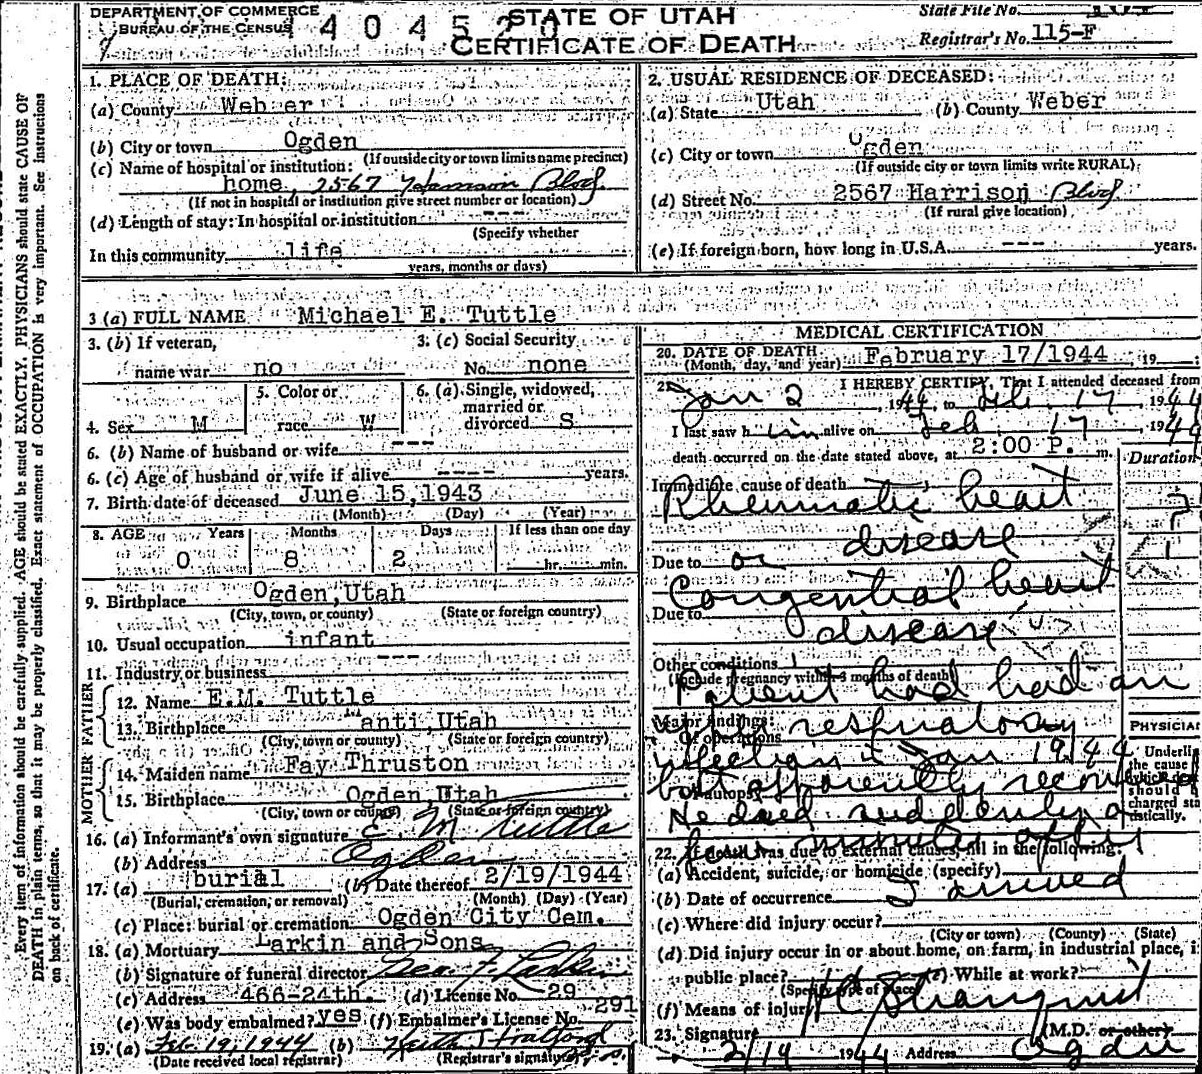 DEPARTMENT OF COMMERCE
BUREAU OF THE CENSUS
STATE OF UTAH
CERTIFICATE OF DEATH
State File No.
Registrar's No. 115-F
Every item of information should be carefully supplied. AGE should be stated EXACTLY. PHYSICIANS should state CAUSE OF
DEATH in plain terms, so that it may be properly classified. Exact statement of OCCUPATION is very important. See instructions
on back of certificate.
1. PLACE OF DEATH:
(a) County Weber
(b) City or town Ogden
(If outside city or town limits name precinct)
(c) Name of hospital or institution:
home, 2567 Harrison Blvd.
(If not in hospital or institution give street number or location)
(d) Length of stay: In hospital or institution ---
(Specify whether
In this community life
years, months or days)
2. USUAL RESIDENCE OF DECEASED:
(a) State Utah (b) County Weber
(c) City or town Ogden
(If outside city or town limits write RURAL)
(d) Street No. 2567 Harrison Blvd
(If rural give location)
(e) If foreign born, how long in U.S.A. --- years.
3 (a) FULL NAME Michael E. Tuttle
3. (b) If veteran, 3. (c) Social Security
name war no No. none
4. Sex M 5. Color or race W 6. (a) Single, widowed, married or divorced S
6. (b) Name of husband or wife ---
6. (c) Age of husband or wife if alive ---- years.
7. Birth date of deceased June 15, 1943
(Month) (Day) (Year)
8. AGE Years Months Days If less than one day
0 8 2 hr. min.
9. Birthplace Ogden, Utah
(City, town, or county) (State or foreign country)
10. Usual occupation infant
11. Industry or business ---
FATHER
12. Name E.M. Tuttle
13. Birthplace Manti, Utah
(City, town or county) (State or foreign country)
MOTHER
14. Maiden name Fay Thruston
15. Birthplace Ogden, Utah
(City, town or county) (State or foreign country)
16. (a) Informant's own signature E. M. Tuttle
(b) Address Ogden
17. (a) burial (b) Date thereof 2/19/1944
(Burial, cremation, or removal) (Month) (Day) (Year)
(c) Place: burial or cremation Ogden City Cem.
18. (a) Mortuary Larkin and Sons
(b) Signature of funeral director Geo. F. Larkin
(c) Address 466-24th. (d) License No. 29
(e) Was body embalmed? yes (f) Embalmer's License No. 291
19. (a) Feb 19, 1944 (b) Keith Stratford
(Date received local registrar) (Registrar's signature)
MEDICAL CERTIFICATION
20. DATE OF DEATH February 17/1944 19
(Month, day, and year)
21. I HEREBY CERTIFY, That I attended deceased from
Jan 2, 1944, to Feb 17 1944
I last saw him alive on Feb 17 1944
death occurred on the date stated above, at 2:00 P. m.
Duration
Immediate cause of death
Rheumatic heart
disease
Due to or
Congenital heart
Due to
disease
Other conditions
(Include pregnancy within 3 months of death)
Patient had had an
Major findings:
Of operations
respiratory
infection in Jan 1944
Of autopsy
but apparently
He died suddenly a
few minutes after
I arrived
PHYSICIAN
Underline
the cause to
which death
should be
charged sta
tistically.
22. If death was due to external causes, fill in the following:
(a) Accident, suicide, or homicide (specify)
(b) Date of occurrence
(c) Where did injury occur?
(City or town) (County) (State)
(d) Did injury occur in or about home, on farm, in industrial place, i
public place? (e) While at work?
(Specify type of place)
(f) Means of injury
23. Signature (M.D. or other)
2/19 1944 Address Ogden